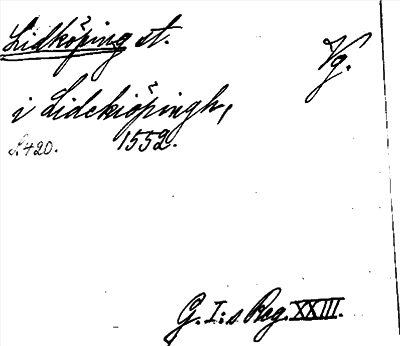 Lidköping st.
Vg.
i Lidekiöpingh,
S. 420. 1552.
G. I:s Reg. XXIII.